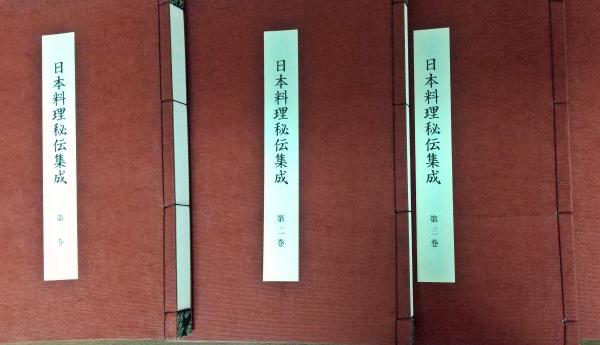 日本料理秘伝集成
第一巻
日本料理秘伝集成
第二巻
日本料理秘伝集成
第三巻